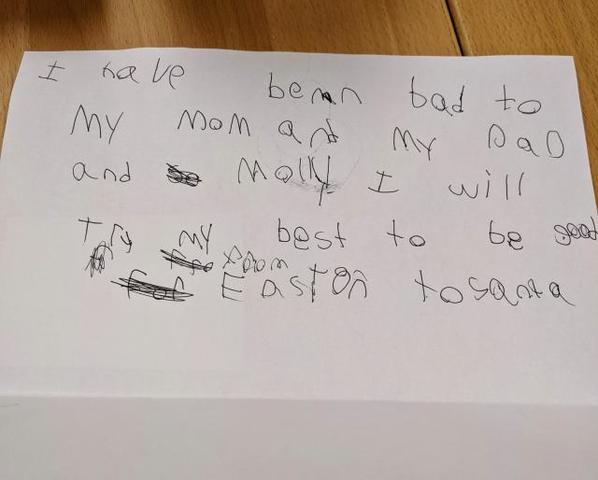 I have benn bad to
My MoM and My DaD
and Molly I will
Try My best to be good
from
EastOn to santa